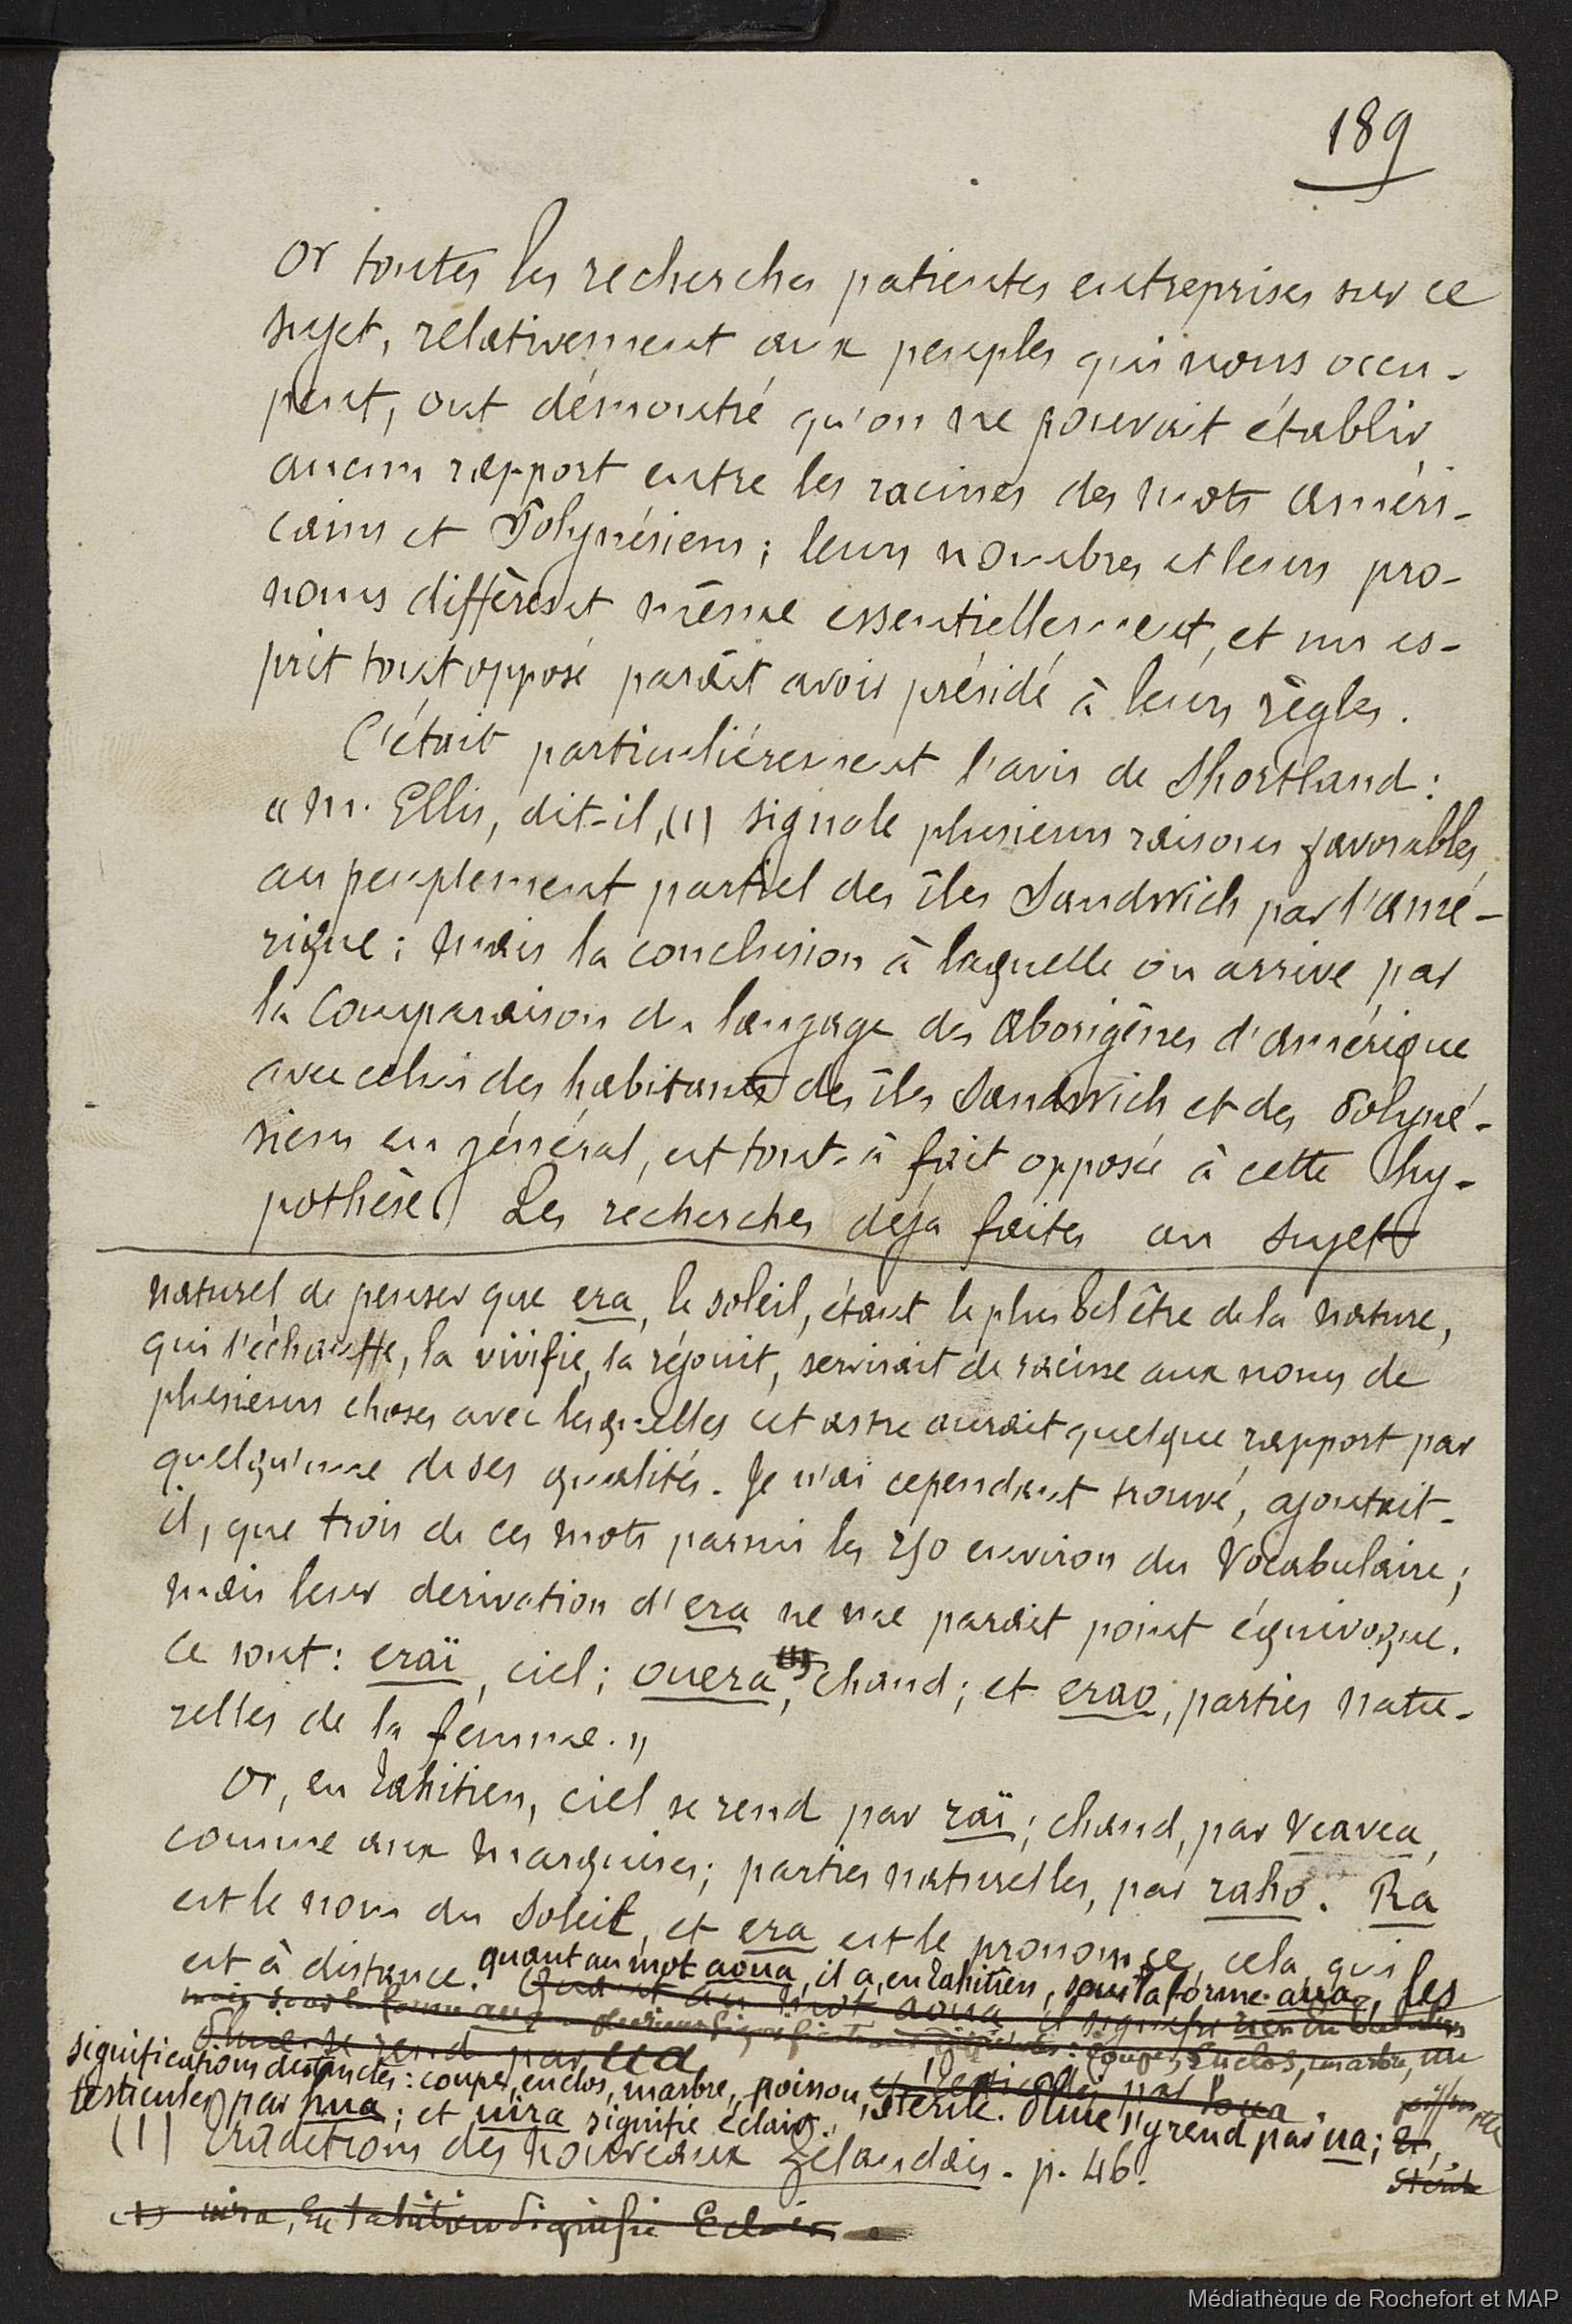 189
Or toutes les recherches patientes entreprises sur ce
sujet, relativement aux peuples qui nous occu-
pent, ont démontré qu'on ne pouvait établir
aucun rapport entre les racines des mots améri-
cains et Polynésiens ; leurs nombres et leurs pro-
noms diffèrent même essentiellement, et un es-
prit tout opposé paraît avoir présidé à leurs règles.
C'était particulièrement l'avis de Shortland :
« M. Ellis, dit-il, (1) signale plusieurs raisons favorables
au peuplement partiel des îles Sandwich par l'amé-
rique ; mais la conclusion à laquelle on arrive par
la Comparaison du langage des aborigènes d'amérique
avec celui des habitants des îles Sandwich et des Polyné-
siens en général, est tout-à fait opposée à cette hy-
pothèse. Les recherches déjà faites au sujet
naturel de penser que era, le soleil, étant le plus bel être de la nature,
qui l'échauffe, la vivifie, la réjouit, servirait de racine aux noms de
plusieurs choses avec lesquelles cet astre aurait quelque rapport par
quelqu'une de ses qualités. Je n'ai cependant trouvé, ajoutait-
il, que trois de ces mots parmi les 250 environ du Vocabulaire ;
mais leur derivation d'era ne me paraît point équivoque.
Ce sont : eraï, ciel ; ouera, chaud ; et erao, parties natu-
relles de la femme. »
Or, en Tahitien, ciel se rend par raï ; chaud, par veavea,
comme aux marquises ; parties naturelles, par raho. Ra
est le nom du Soleil, et era est le pronom ce, cela qui
est à distance. quant au mot aoua, il a, en Tahitien, sous la forme aua, les
Quant au mot aoua il signifie rien en Tahitien
mais sous la forme aua plusieurs significations différentes : coupe, enclos, marbre, un
Pluie se rend par ua
significations distinctes : coupe, enclos, marbre, poisson, stérile. Pluie s'y rend par ua ; et,
et testicules par houa. poisson
testicules par hua ; et uira signifie éclair.
stérile
(1) Traditions des nouveaux Zélandais. p. 46.
(1) uira, En tahitien Signifie Eclair
Médiathèque de Rochefort et MAP